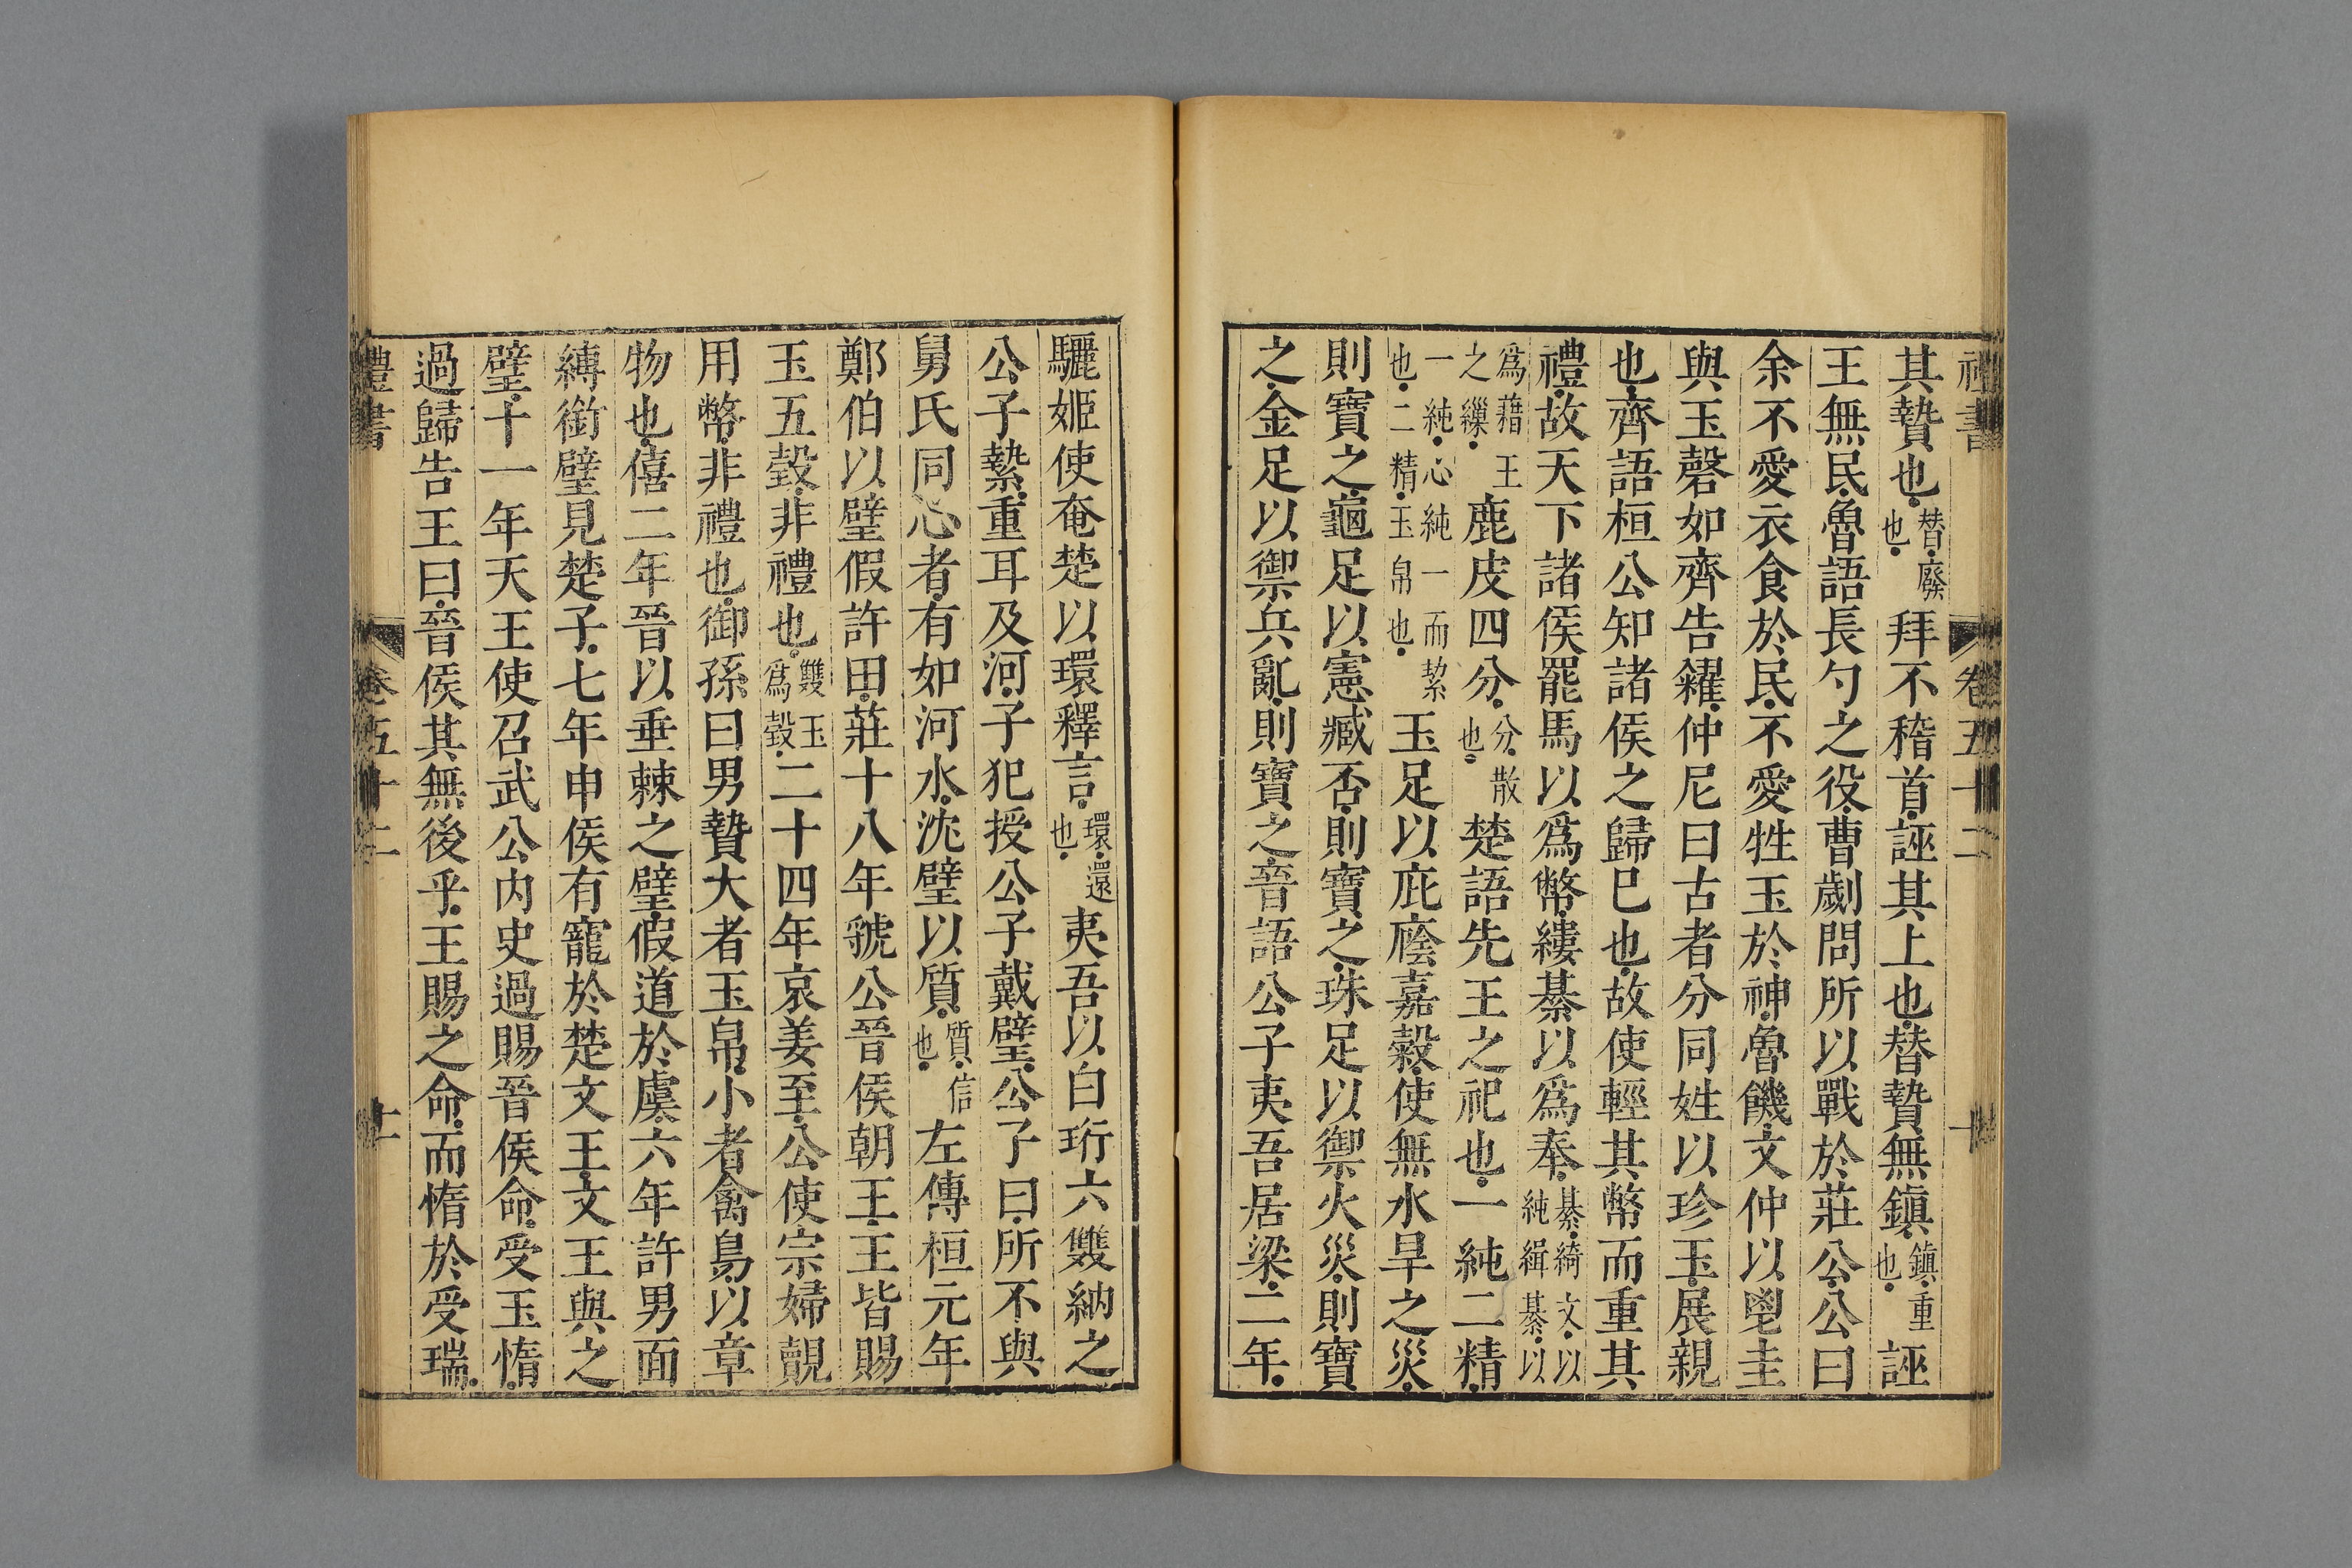 禮書 卷五十二 十
其贄也替廢也拜不稽首誣其上也替贄無鎮鎮重也誣
王無民魯語長勺之役曹劌問所以戰於莊公公曰
余不愛衣食於民不愛牲玉於神魯饑文仲以鬯圭
與玉磬如齊告糴仲尼曰古者分同姓以珍玉展親
也齊語桓公知諸侯之歸巳也故使輕其幣而重其
禮故天下諸侯罷馬以爲幣縷綦以爲奉綦綺文以純緝綦以
爲藉王之繅鹿皮四分分散也楚語先王之祀也一純二精
一純心純一而絜也二精玉帛也玉足以庇廕嘉穀使無水旱之災
則寶之龜足以憲臧否則寶之珠足以禦火災則寶
之金足以禦兵亂則寶之晉語公子夷吾居梁二年
驪姬使奄楚以環釋言環還也夷吾以白珩六雙納之
公子縶重耳及河子犯授公子戴璧公子曰所不與
舅氏同心者有如河水沈璧以質質信也左傳桓元年
鄭伯以璧假許田莊十八年虢公晉侯朝王王皆賜
玉五瑴非禮也雙玉爲瑴二十四年哀姜至公使宗婦覿
用幣非禮也御孫曰男贄大者玉帛小者禽鳥以章
物也僖二年晉以垂棘之璧假道於虞六年許男面
縛銜璧見楚子七年申侯有寵於楚文王文王與之
璧十一年天王使召武公内史過賜晉侯命受玉惰
過歸告王曰晉侯其無後乎王賜之命而惰於受瑞
禮書 卷五十二 十一